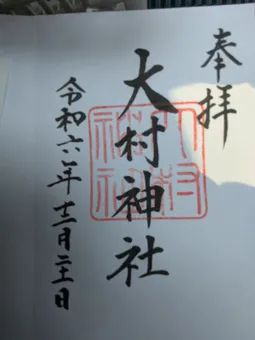 奉拝
大村神社
令和六年十二月二十二日